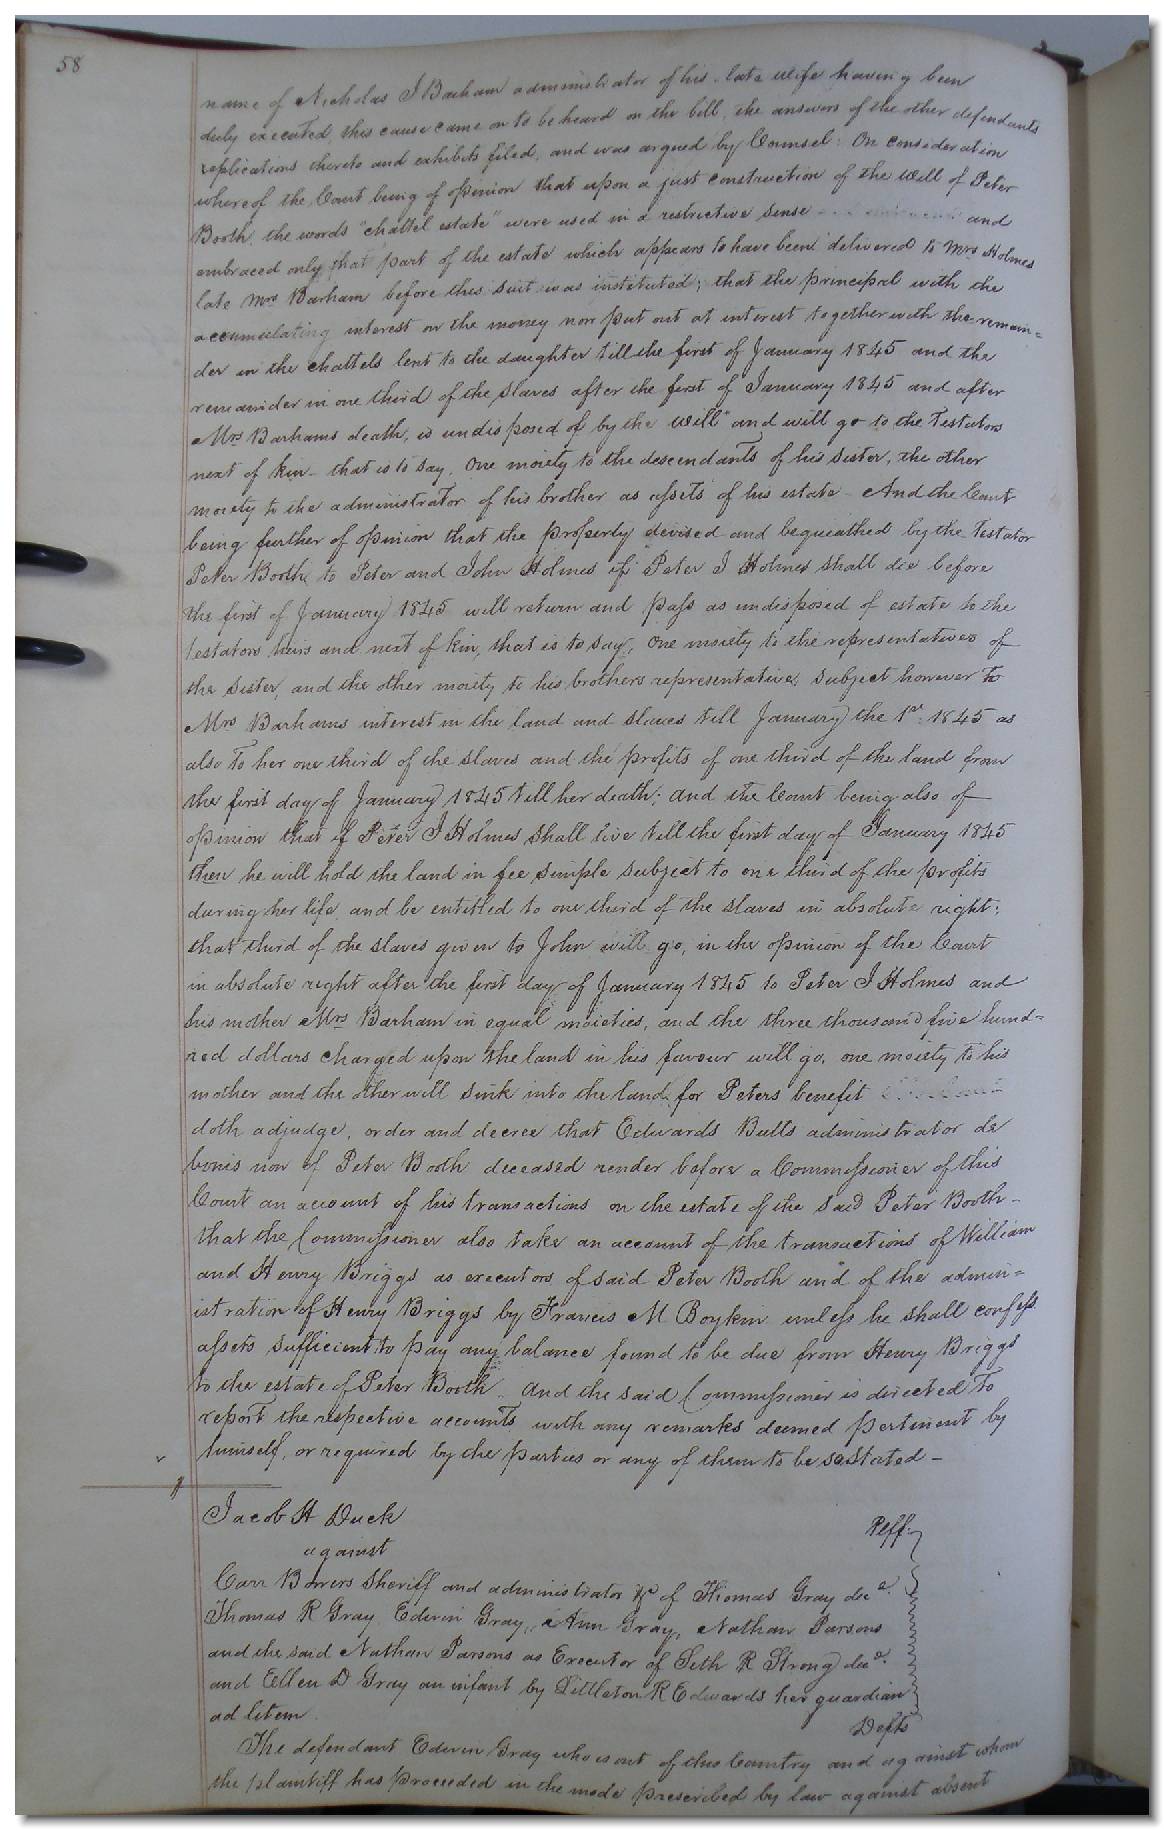 58
name of Nicholas J Barham administrator of his late wife having been
duly executed, this cause came on to be heard on the bill, the answers of the other defendants
replications thereto and exhibits filed, and was argued by Counsel: On consideration
whereof the Court being of opinion that upon a just construction of the will of Peter
Booth, the words "chattel estate" were used in a restrictive sense and
embraced only that part of the estate which appears to have been delivered to Mrs Holmes
late Mrs Barham before this suit was instituted; that the principal with the
accumulating interest on the money now put out at interest together with the remain=
der in the chattels lent to the daughter till the first of January 1845 and the
remainder in one third of the slaves after the first of January 1845 and after
Mrs Barhams death, is undisposed of by the will" and will go to the Testators
next of kin - that is to say, One moiety to the descendants of his sister, the other
moiety to the administrator of his brother as assets of his estate - And the Court
being further of opinion that the property devised and bequeathed by the Testator
Peter Booth to Peter and John Holmes if Peter J Holmes shall die before
the first of January 1845 will return and pass as undisposed of estate to the
testators heirs and next of kin, that is to say, One moiety to the representatives of
the sister, and the other moiety to his brothers representative; subject however to
Mrs Barhams interest in the land and slaves till January the 1st 1845 as
also to her one third of the slaves and the profits of one third of the land from
the first day of January 1845 till her death; and the Court being also of
opinion that if Peter J Holmes shall live till the first day of January 1845
then he will hold the land in fee simple subject to one third of the profits
during her life, and be entitled to one third of the slaves in absolute right;
that third of the slaves given to John will go, in the opinion of the Court
in absolute right after the first day of January 1845 to Peter J Holmes and
his mother Mrs Barham in equal moieties, and the three thousand five hund=
red dollars charged upon the land in his favour will go, one moiety to his
mother and the other will sink into the land for Peters benefit
doth adjudge, order and decree that Edwards Butts administrator de
bonis non of Peter Booth deceased render before a Commissioner of this
Court an account of his transactions on the estate of the said Peter Booth -
that the Commissioner also take an account of the transactions of William
and Henry Briggs as executors of said Peter Booth and of the admin=
istration of Henry Briggs by Francis M Boykin unless he shall confess
assets sufficient to pay any balance found to be due from Henry Briggs
to the estate of Peter Booth. And the said Commissioner is directed to
report the respective accounts with any remarks deemed pertinent by
himself, or required by the parties or any of them to be so stated -
Jacob H Duck Plff
against
Carr Bowers Sheriff and administrator &c of Thomas Gray decd.
Thomas R Gray, Edwin Gray, Ann Gray, Nathan Parsons
and the said Nathan Parsons as Executor of Seth R Strong decd.
and Ellen D Gray an infant by Littleton R Edwards her guardian
ad litem. Defts
The defendant Edwin Gray who is out of this Country and against whom
the plaintiff has proceeded in the mode prescribed by law against absent